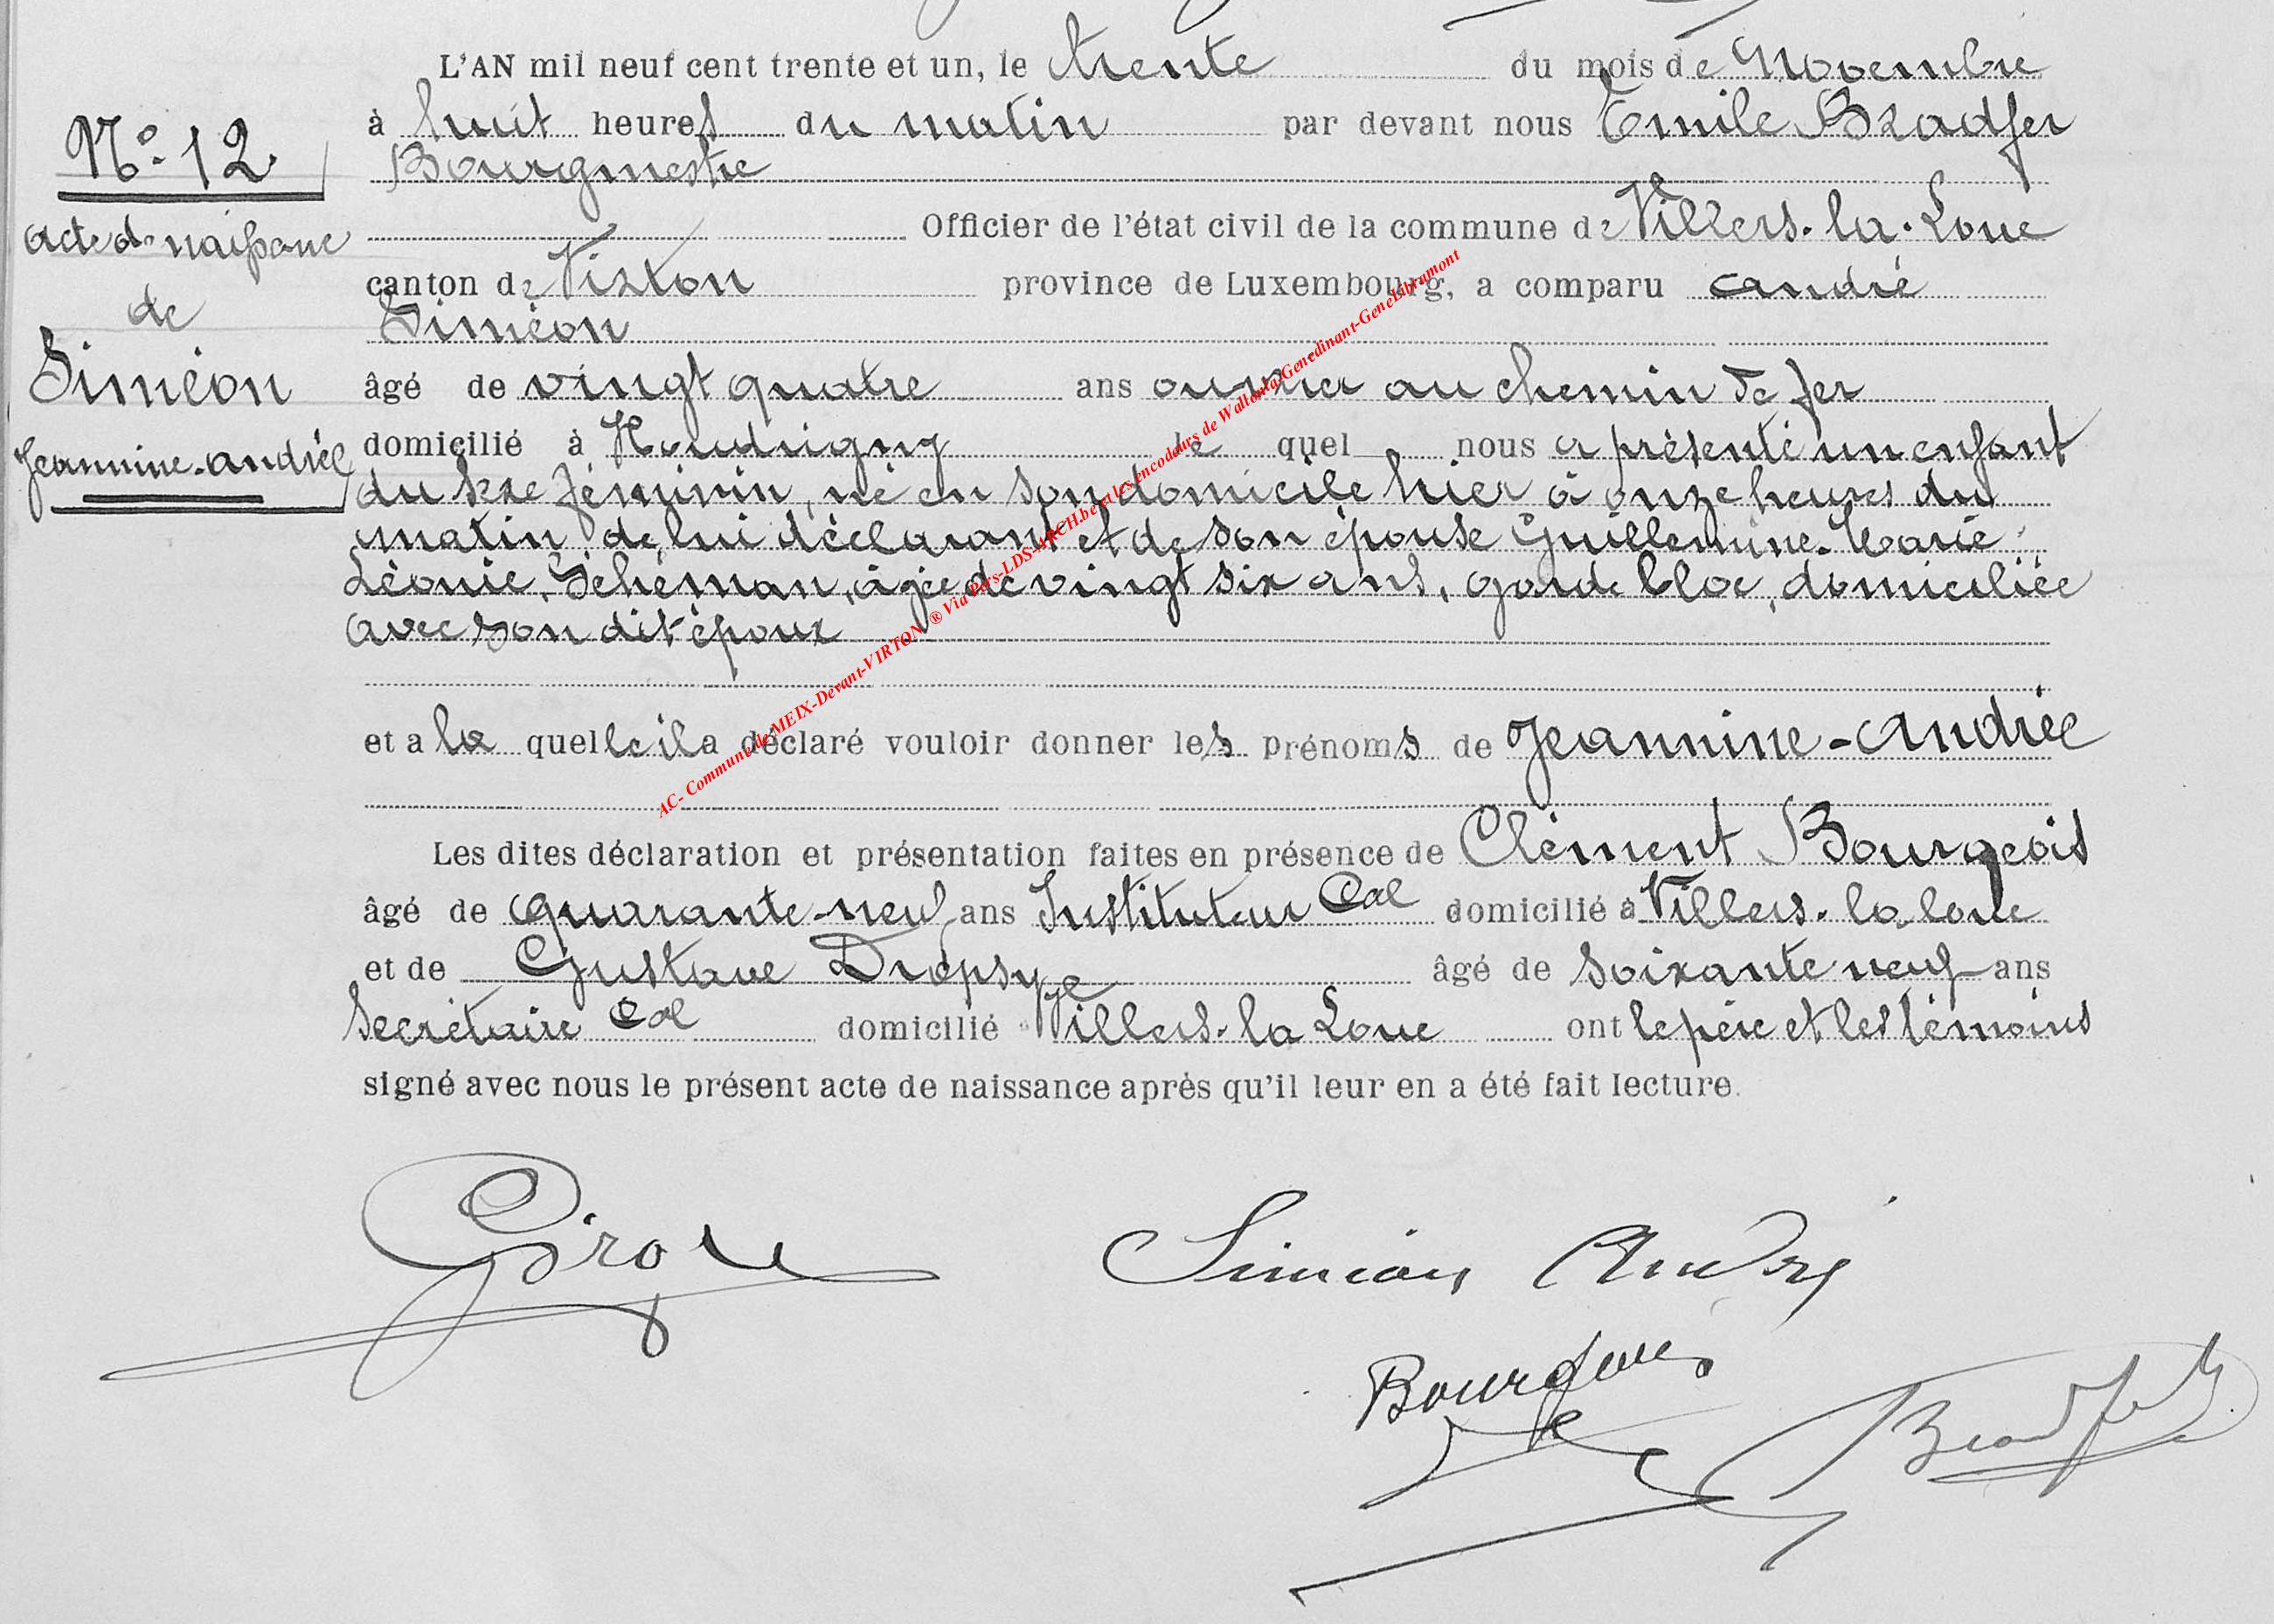 L'AN mil neuf cent trente et un, le trente du mois de Novembre
à huit heures du matin par devant nous Emile Bradfer
Bourgmestre
Officier de l'état civil de la commune de Villers-la-Loue
canton de Virton province de Luxembourg, a comparu André
Siméon
âgé de vingt quatre ans ouvrier au chemin de fer
domicilié à Houdrigny le quel nous a présenté un enfant
du sexe féminin, né en son domicile hier à onze heures du
matin de lui déclarant et de son épouse Guillemine-Marie
Léonie, Schéman, âgée de vingt six ans, garde bloc, domiciliée
avec son dit époux
et a la quelle il a déclaré vouloir donner les prénoms de Jeannine-Andrée
Les dites déclaration et présentation faites en présence de Clément Bourgeois
âgé de quarante-neuf ans Instituteur Cal domicilié à Villers-la loue
et de Gustave Dropsy âgé de soixante neuf ans
Secrétaire Cal domicilié à Villers-la Loue ont le père et les témoins
signé avec nous le présent acte de naissance après qu'il leur en a été fait lecture.
N° 12
acte de naissance
de
Siméon
Jeannine-andrée
Siméon André
Bourgeois
Bradfer
AC- Commune de MEIX-Devant-VIRTON ® Via Pers-LDS-ARCH.be et les encodeurs de Wallonia-Genedinant-GeneLibramont